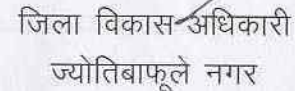 जिला विकास अधिकारी
ज्योतिबाफूले नगर